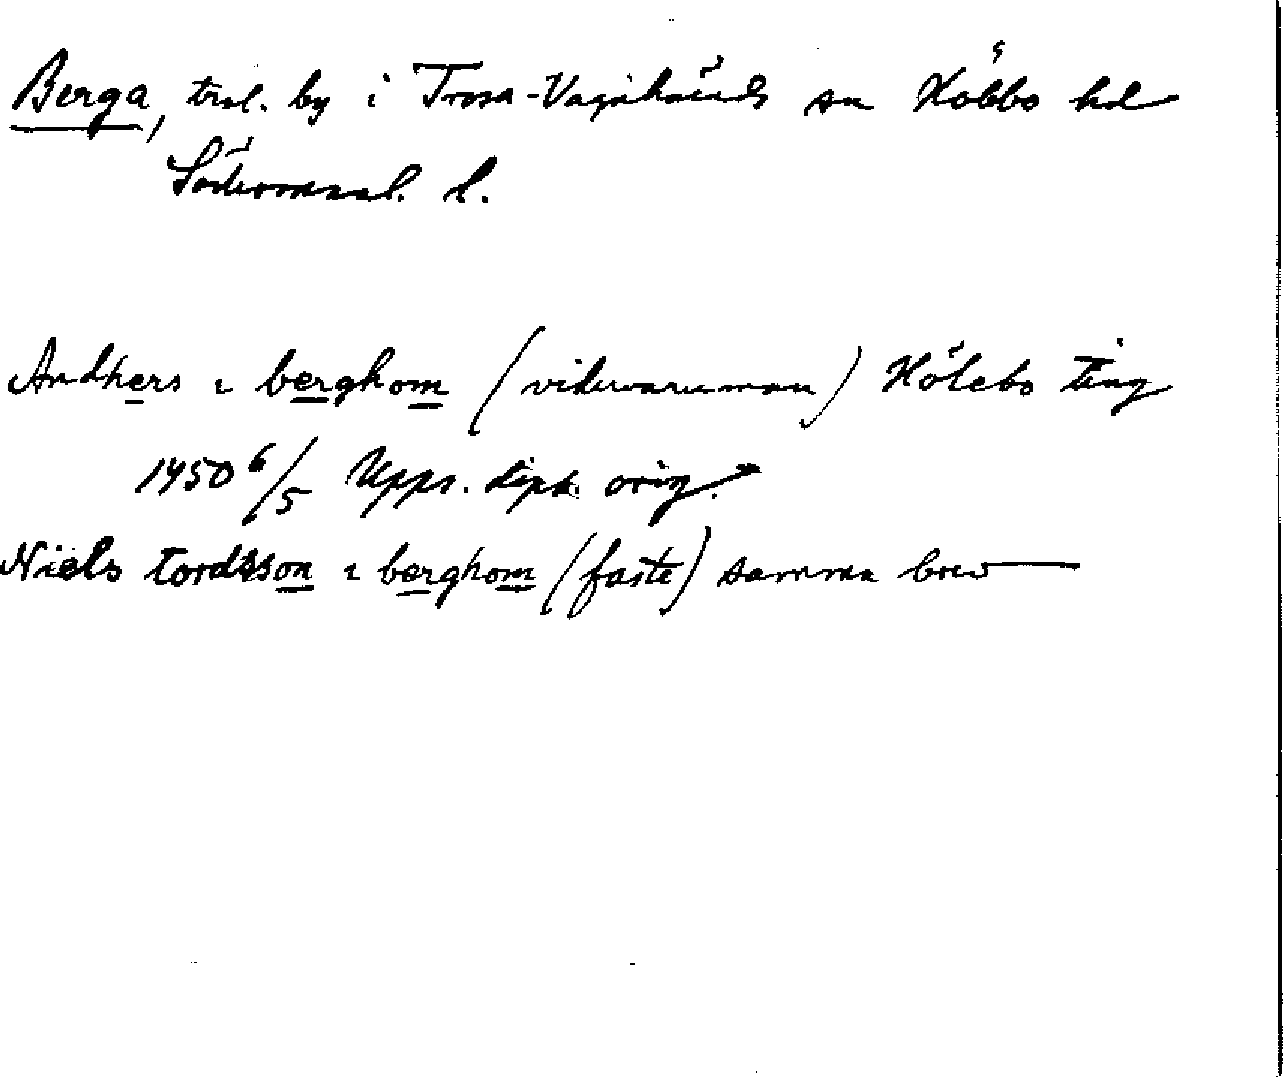 Berga, trol. by i Trosa-Vagnhärads sn Hölebo hd
Södermanl. l.
Andhers i berghom (viduvaruman) Hölebo ting
1450 6/5 Upps. dipl. orig.
Niels tordsson i berghom (faste) samma brev